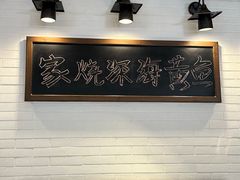 家烧深海黄鱼